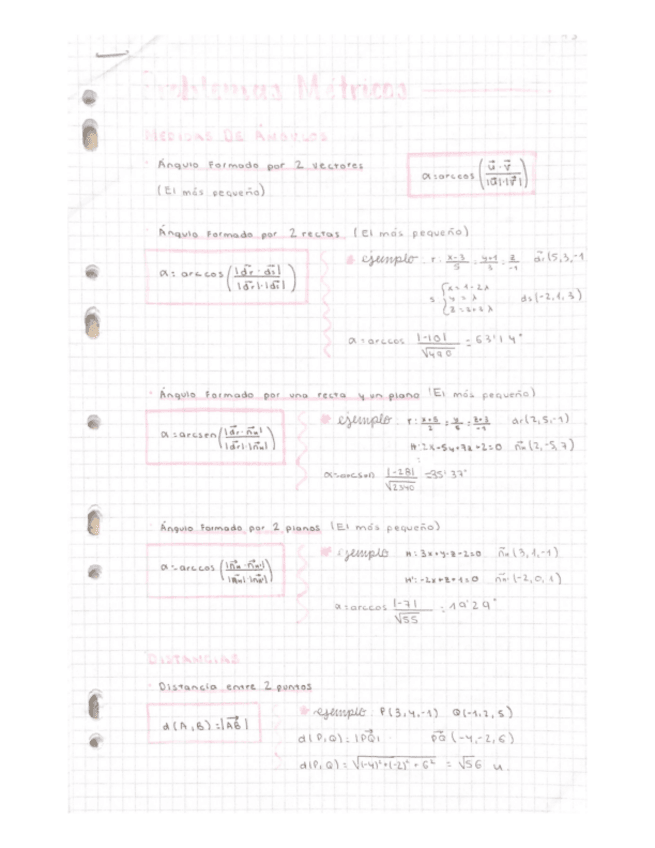 Problemas Métricos
MEDIDAS DE ÁNGULOS
· Ángulo formado por 2 vectores
(El más pequeño)
α=arccos(ū·v̄ / |ū|·|v̄|)
· Ángulo formado por 2 rectas (El más pequeño)
α= arccos(|dr·ds| / |dr|·|ds|)
ejemplo: r: x-3/5 = y+1/3 = z/-1 dr(5,3,-1
s { x=1-2λ
y=λ
ds(-2,1,3)
α=arccos |-10|/√490 = 63'14°
· Ángulo formado por una recta y un plano (El más pequeño)
α=arcsen(|dr·nπ| / |dr|·|nπ|)
ejemplo: r: x+5/2 = y/5 = z+3/-1 dr(2,5,-1)
π: 2x-5y+7z+2=0 nπ(2,-5,7)
α=arcsen |-28|/√2340 =35'37°
· Ángulo formado por 2 planos (El más pequeño)
α=arccos(|nπ·nπ'| / |nπ|·|nπ'|)
ejemplo π: 3x+y-z-2=0 nπ(3,1,-1)
π': -2x+z+1=0 nπ'(-2,0,1)
α=arccos |-7|/√55 = 19'29°
DISTANCIAS
· Distancia entre 2 puntos
d(A,B)=|AB|
ejemplo P(3,4,-1) Q(-1,2,5)
d(P,Q)=|PQ| PQ(-4,-2,6)
d(P,Q)=√(-4)²+(-2)²+6² = √56 u.